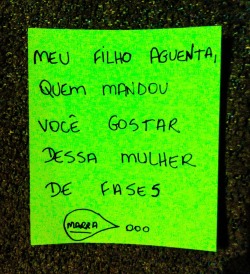 MEU FILHO AGUENTA,
QUEM MANDOU
VOCÊ GOSTAR
DESSA MULHER
DE FASES
MARRA ooo